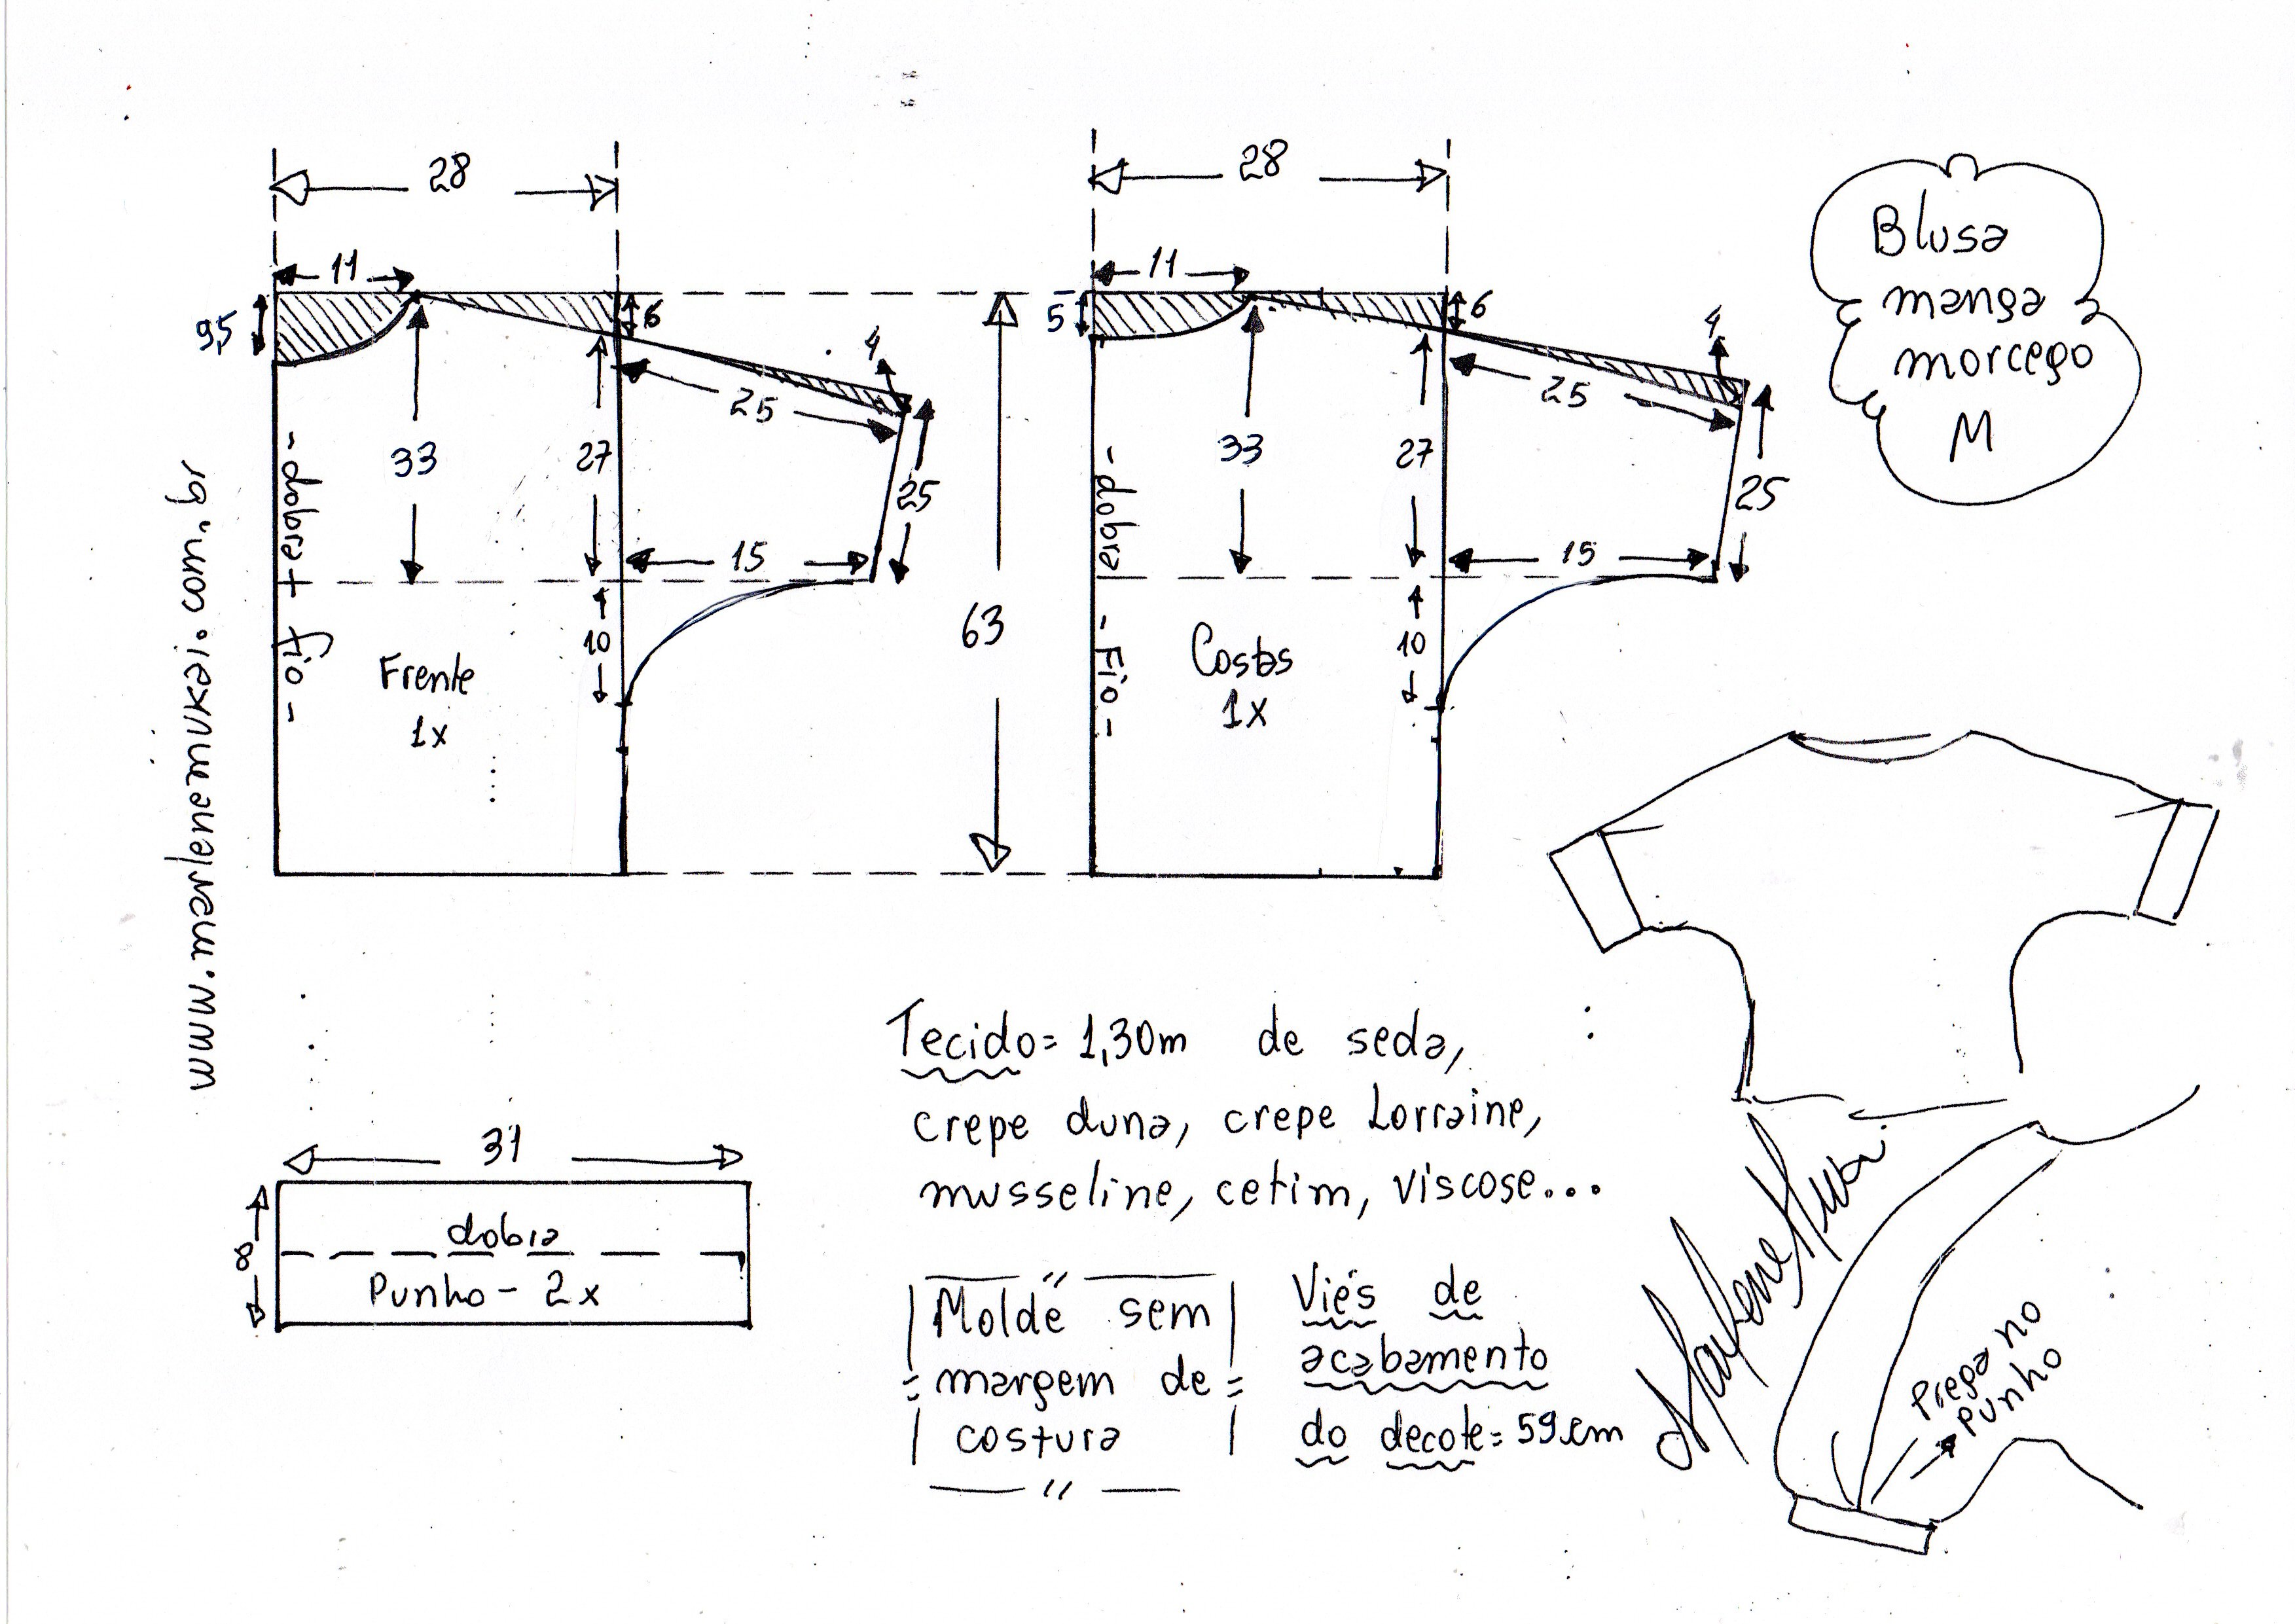 28
11
9,5
6
4
25
33
27
25
15
10
- dobra + fio -
Frente
1x
63
28
11
5
6
4
25
33
27
25
15
10
- dobra - Fio -
Costas
1x
Blusa
manga
morcego
M
www.marlenemukai.com.br
31
8
dobra
Punho - 2x
Tecido= 1,30m de seda,
crepe duna, crepe Lorraine,
musseline, cetim, viscose...
Molde sem
margem de
costura
Viés de
acabamento
do decote= 59cm
Marlene Mukai
Prega no
Punho